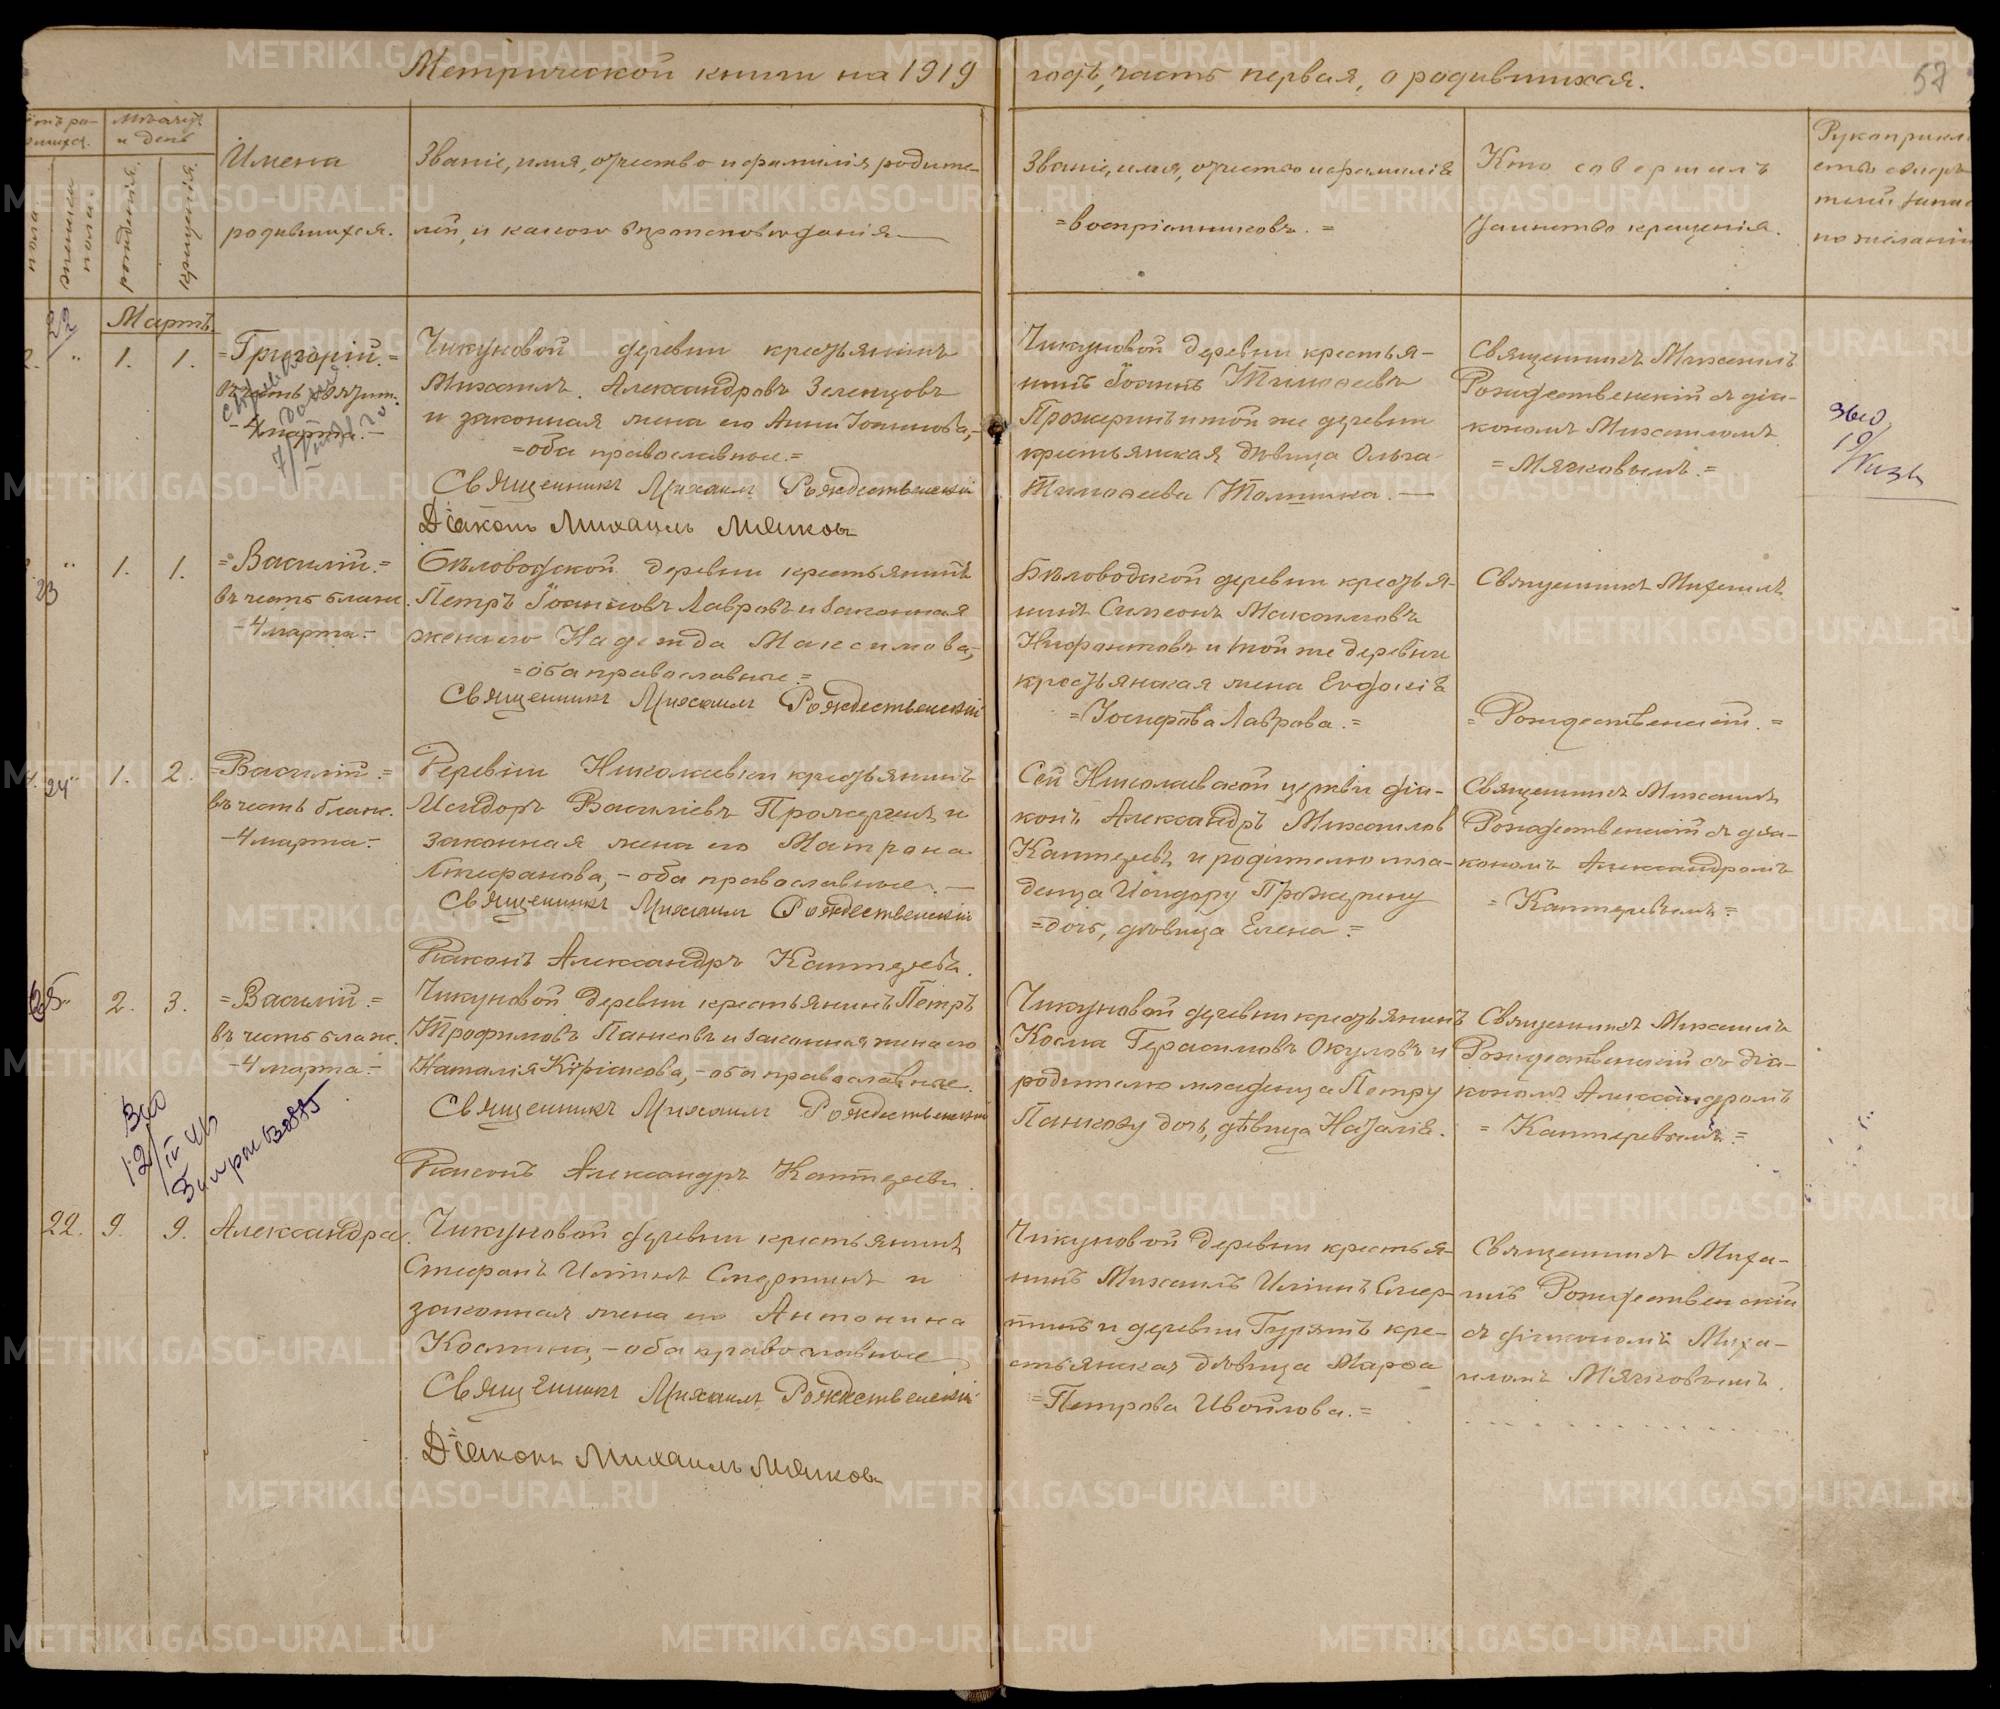 Метрической книги на 1919
годъ, часть первая, о родившихся.
57
Мѣсяцъ
и день
женска
пола.
рожденія.
крещенія.
Имена
родившихся.
Званіе, имя, отчество и фамилія родите-
лей, и какого вѣроисповѣданія
Званіе, имя, отчество и фамилія
=воспріемниковъ.=
Кто совершалъ
таинство крещенія.
Рукоприкл
ство свидѣ
телей запис
по желанію
Мартъ
22
1. 1.
=Григорій.=
-4 марта.-
Чикуновой деревни крестьянинъ
Михаилъ Александровъ Зеленцовъ
и законная жена его Анна Іоаннова,-
=оба православные.=
Священникъ Михаилъ Рождественскій
Діаконъ Михаилъ Мячковъ
Чикуновой деревни крестья-
нинъ Іоаннъ Тимоѳеевъ
Прожеринъ и той же деревни
крестьянская дѣвица Ольга
Тимоѳеева
Священникъ Михаилъ
Рождественскій съ діа-
кономъ Михаиломъ
=Мячковымъ.=
23
1. 1.
=Василій.=
въ честь блаж.
-4 марта.-
Бѣловодской деревни крестьянинъ
Петръ Іоанновъ Лавровъ и законная
жена его Надежда Максимова,-
=оба православные.=
Священникъ Михаилъ Рождественскій
Бѣловодской деревни крестья-
нинъ Симеонъ Максимовъ
Нифонтовъ и той же деревни
крестьянская жена Евдокія
=Іосифова Лаврова.=
Священникъ Михаилъ
=Рождественскій.=
24
1. 2.
=Василій.=
въ честь блаж.
-4 марта.-
Деревни Николаевки крестьянинъ
Исидоръ Василіевъ Прожеринъ и
законная жена его Матрона
Стефанова,-оба православные.-
Священникъ Михаилъ Рождественскій
Діаконъ Александръ Каптеревъ.
Сей Николаевской церкви діа-
конъ Александръ Михаилов
Каптеревъ и родителю мла-
денца Исидору Прожерину
=дочь, дѣвица Елена.=
Священникъ Михаилъ
Рождественскій съ діа-
кономъ Александромъ
=Каптеревымъ.=
25
2. 3.
=Василій.=
въ честь блаж.
-4 марта.-
Чикуновой деревни крестьянинъ Петръ
Трофимовъ Панковъ и законная жена его
Наталія Киріакова,-оба православные.
Священникъ Михаилъ Рождественскій
Діаконъ Александръ Каптеревъ.
Чикуновой деревни крестьянинъ
Косма Герасимовъ Окуловъ и
родителю младенца Петру
Панкову дочь, дѣвица Наталія.
Священникъ Михаилъ
Рождественскій съ діа-
кономъ Александромъ
=Каптеревымъ.=
12/IV 46
22.
9. 9.
Александра.
Чикуновой деревни крестьянинъ
Стефанъ Иліинъ Смертинъ и
законная жена его Антонина
Космина,-оба православные
Священникъ Михаилъ Рождественскій
Діаконъ Михаилъ Мячковъ
Чикуновой деревни крестья-
нинъ Михаилъ Иліинъ Смер-
тинъ и деревни Гурятъ кре-
стьянская дѣвица Марѳа
=Петрова Ивойлова.=
Священникъ Миха-
илъ Рождественскій
съ діакономъ Миха-
иломъ Мячковымъ.
METRIKI.GASO-URAL.RU